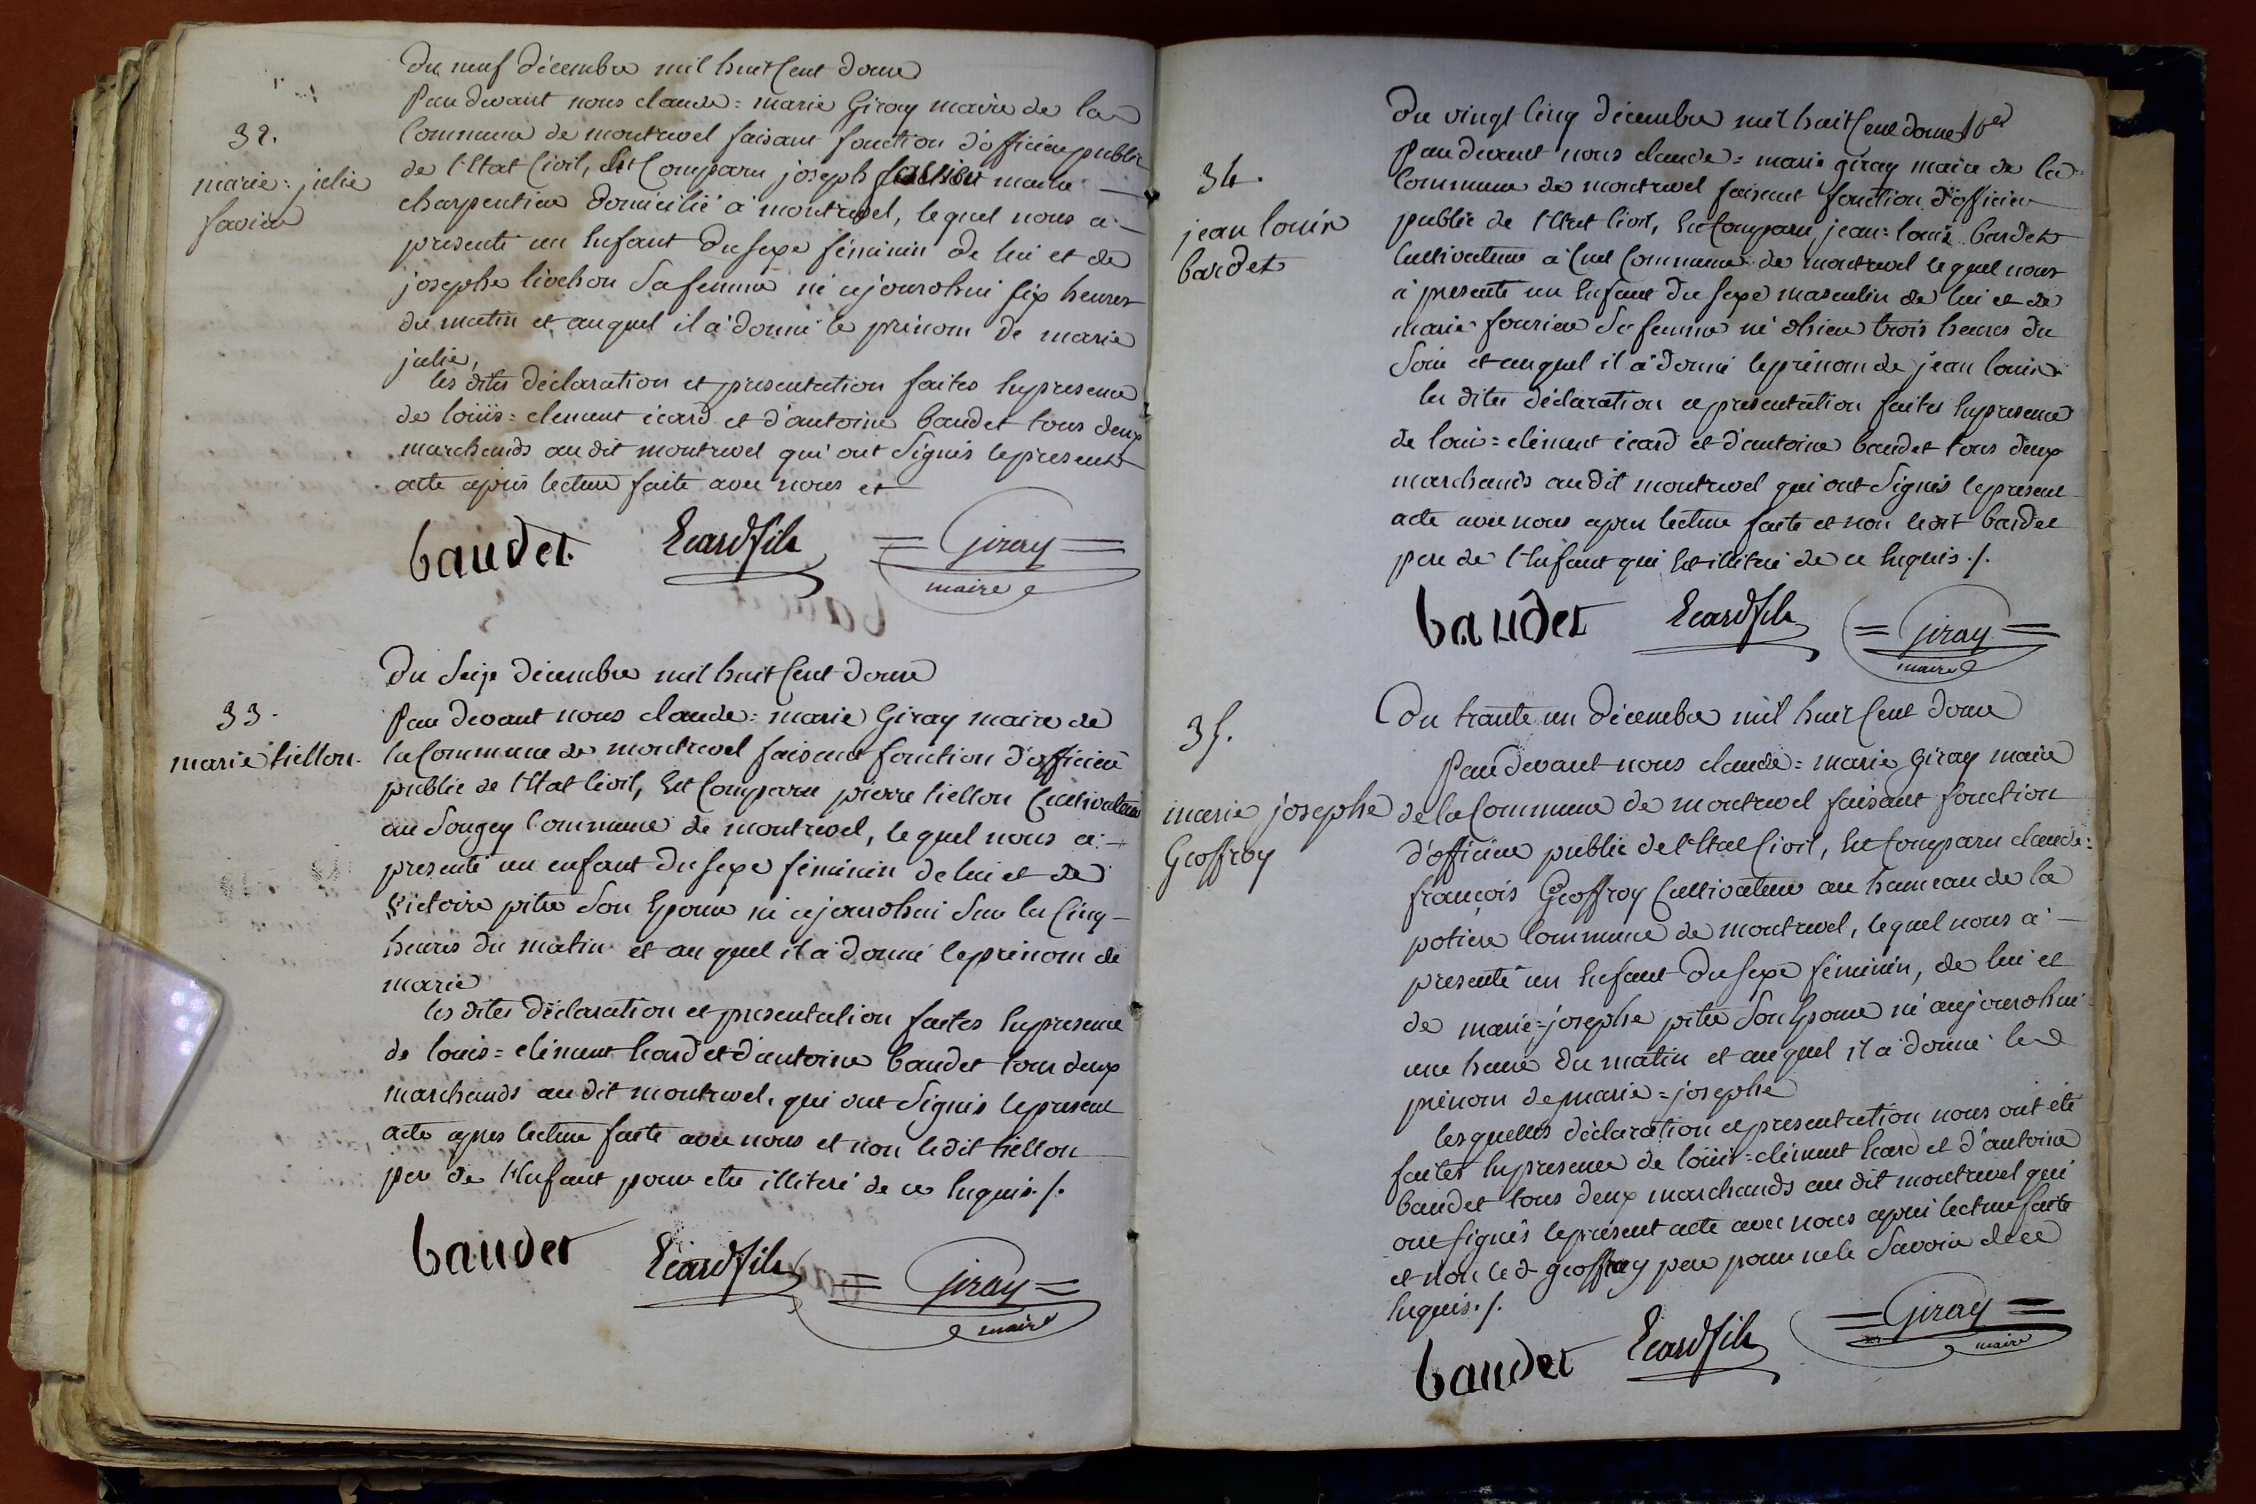 Du neuf décembre mil huit Cent douze
32.
marie=julie
favier
Pardevant nous claude=marie Giray maire de la
Commune de montrevel faisant fonction d'officier public
de l'Etat Civil, Est Comparu joseph favier maitre
charpentier domicilié à montrevel, lequel nous a
presenté un Enfant du sexe féminin de lui et de
josephe liochon Sa femme né ajourdhui six heures
du matin et auquel il a donné le prénom de marie
julie,
les dites déclaration et presentation faites Enpresence
de loüis=clement icard et d'antoine baudet tous deux
marchands au dit montrevel qui ont Signés lepresent
acte après lecture faite avec nous et
baudet Ecard fils Giray
maire
33.
marie tiellon.
Du Seize décembre mil huit Cent douze
Par devant nous claude=marie Giray maire de
la Commune de montrevel faisant fonction d'officier
public de l'Etat Civil, Est Comparu pierre tiellon Cultivateur
au Songey Commune de montrevel, lequel nous a
presenté un enfant du sexe féminin de lui et de
victoire pitre Son Epouse né ajourdhui Sur les Cinq
heures du matin et au quel il a donné leprénom de
marie
les dites déclaration et presentation faites Enpresence
de louis=clément Ecard et d'antoine baudet tous deux
marchands au dit montrevel, qui ont Signés lepresent
acte apres lecture faite avec nous et non ledit tiellon
per de l'Enfant pour etre illiteré de ce Enquis./.
baudet Ecard fils Giray
maire
34.
jean louis
bardet
Du vingt Cinq décembre mil huit Cent douze
Pardevant nous claude=marie giray maire de la
Commune de montrevel faisant fonction d'officier
public de l'Etat Civil, Est Comparu jean=louis bardet
Cultivateur à Commune de montrevel lequel nous
a presenté un Enfant du sexe masculin de lui et de
marie fourier Sa femme né d'hier trois heures du
Soir et auquel il a donné leprénom de jean louis
les dites déclaration et presentation faites Enpresence
de louis=clément icard et d'antoine baudet tous deux
marchands au dit montrevel qui ont Signés lepresent
acte avec nous apres lecture faite et non ledit bardet
per de l'Enfant qui Est illiteré de ce Enquis./.
baudet Ecard fils Giray
maire
35.
marie josephe
Geoffroy
Du trante un décembre mil huit Cent douze
Pardevant nous claude=marie Giray maire
de la Commune de montrevel faisant fonction
d'officier public de l'Etat Civil, Est Comparu claude=
françois Geoffroy Cultivateur au hameau de la
potiere Commune de montrevel, lequel nous a
presenté un Enfant du sexe féminin, de lui et
de marie=josephe pitre Son Epouse né aujourdhui
une heure du matin et auquel il a donné le
prénom de marie=josephe
lesquelles déclaration et presentation nous ont été
faites Enpresence de loüis=clément Ecard et d'antoine
baudet tous deux marchands au dit montrevel qui
ont signés leprésent acte avec nous après lecture faite
et non led geoffroy pere pour ne le Savoir de ce
Enquis./.
baudet Ecard fils Giray
maire